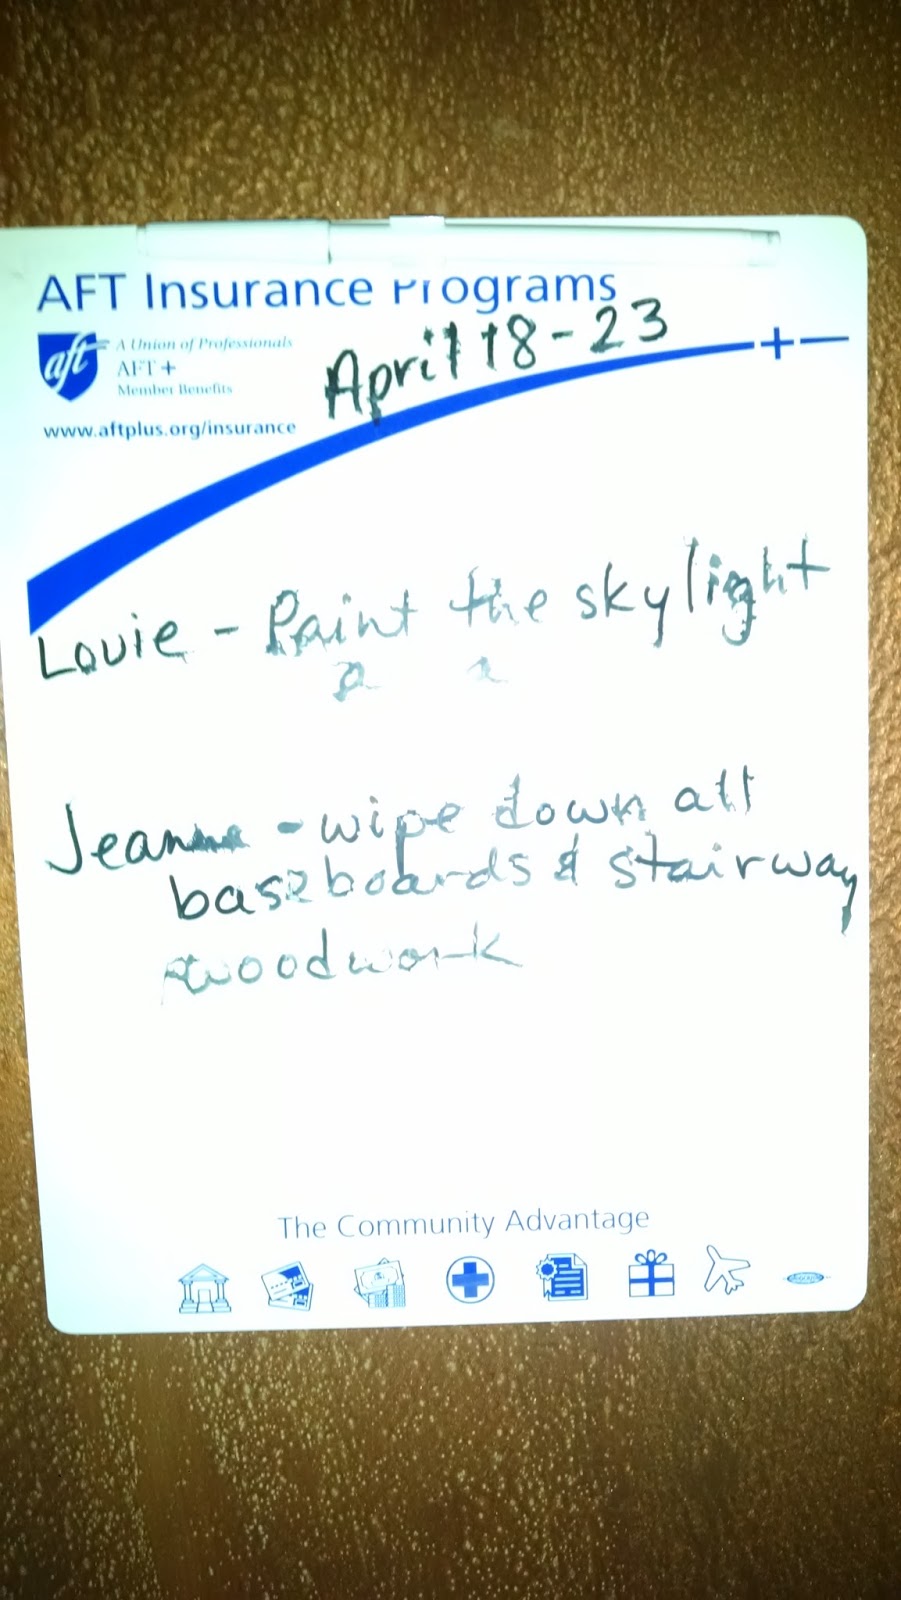 AFT Insurance Programs
aft
A Union of Professionals
AFT +
Member Benefits
www.aftplus.org/insurance
April 18-23
Louie - Paint the skylight
Jeanne - wipe down all
baseboards & stairway
woodwork
The Community Advantage